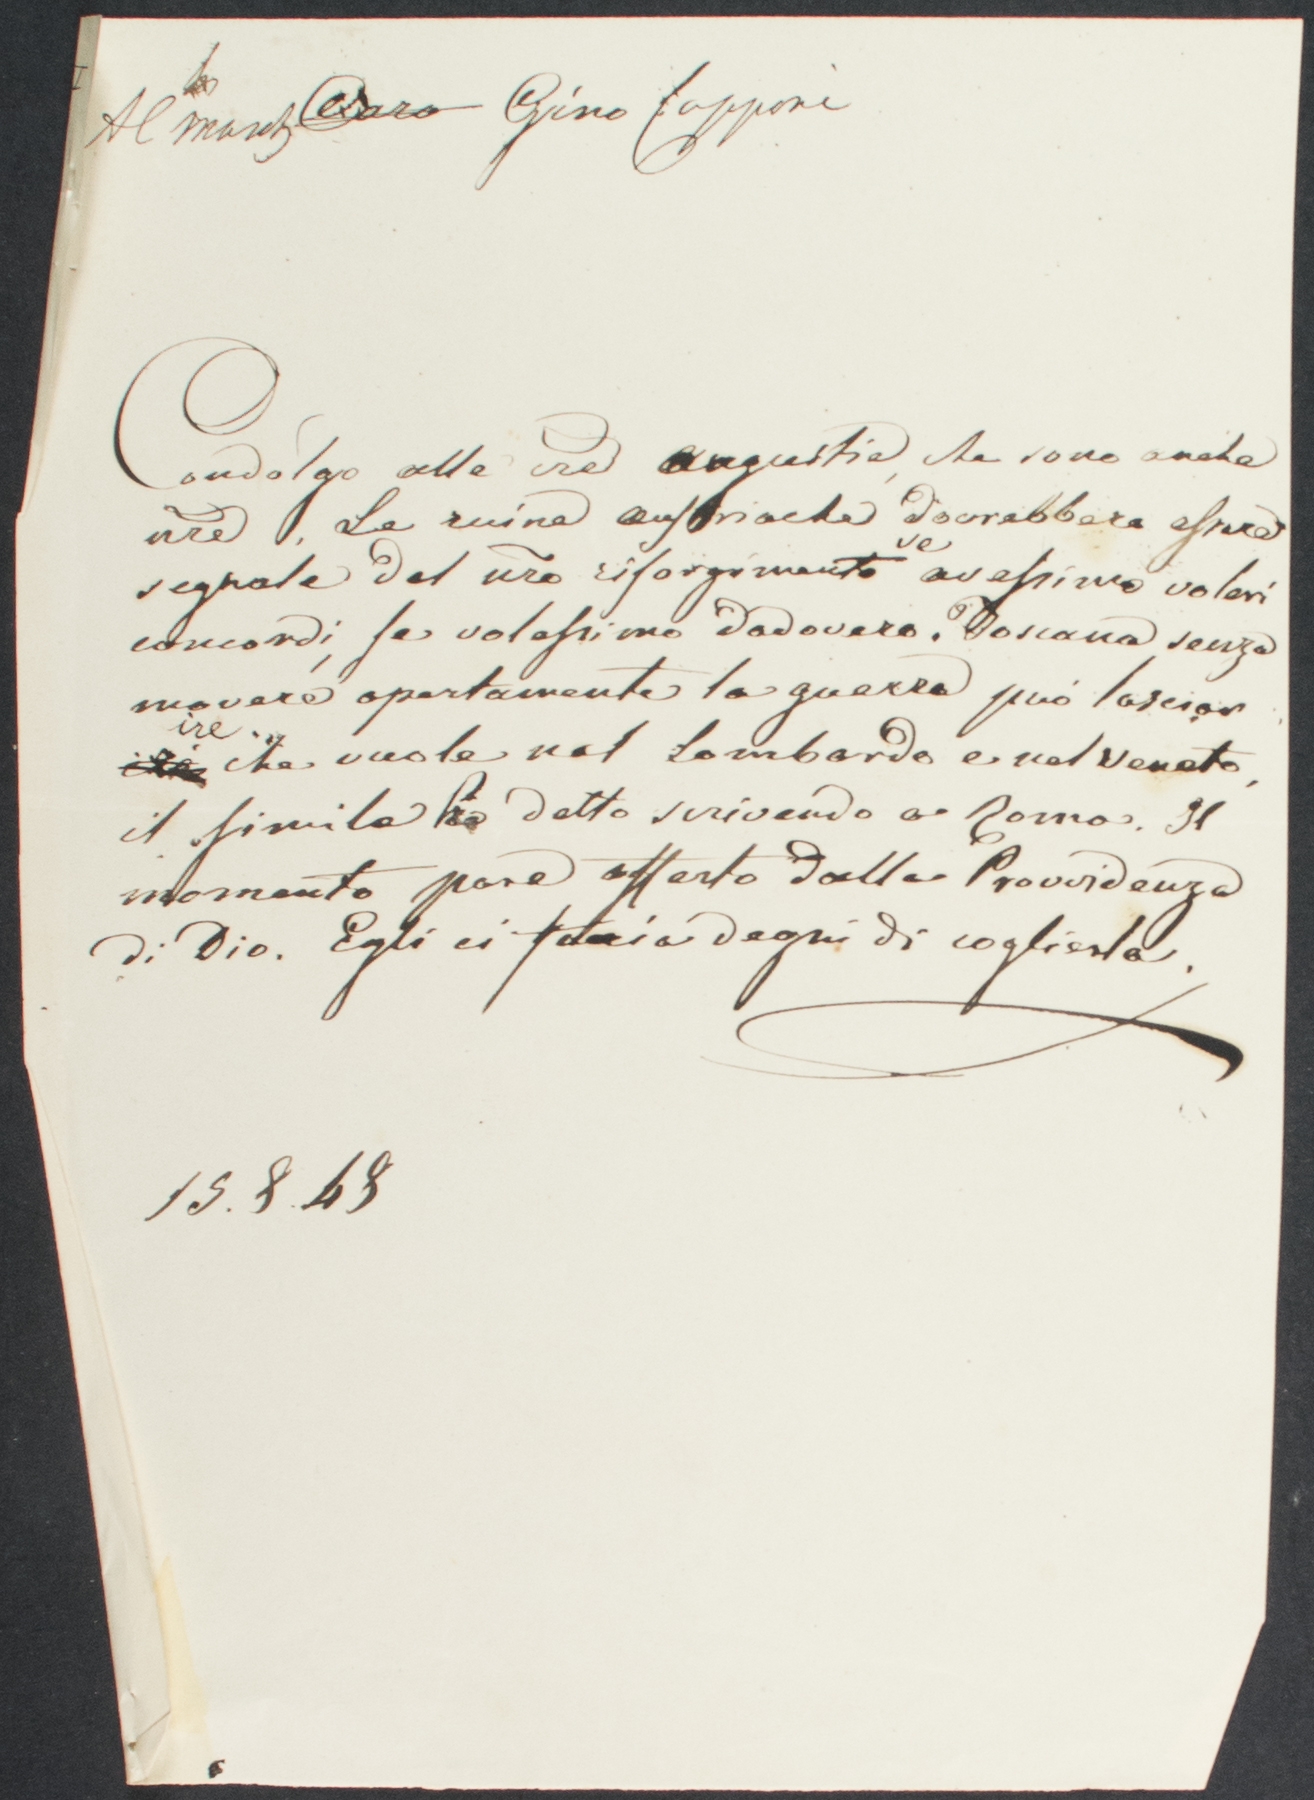 Al March Caro Gino Capponi
Condolgo alle vre angustie, che sono anche
nre. Le ruine austriache dovrebbero essere
segnale del nro risorgimento se avessimo voleri
concordi, se volessimo dadovero. Toscana senza
movere apertamente la guerra può lasciar
ire chi vuole nel Lombardo e nel Veneto,
il simile ho detto scrivendo a Roma. Il
momento pare offerto dalla Provvidenza
di Dio. Egli ci faccia degni di coglierla.
15.8.48